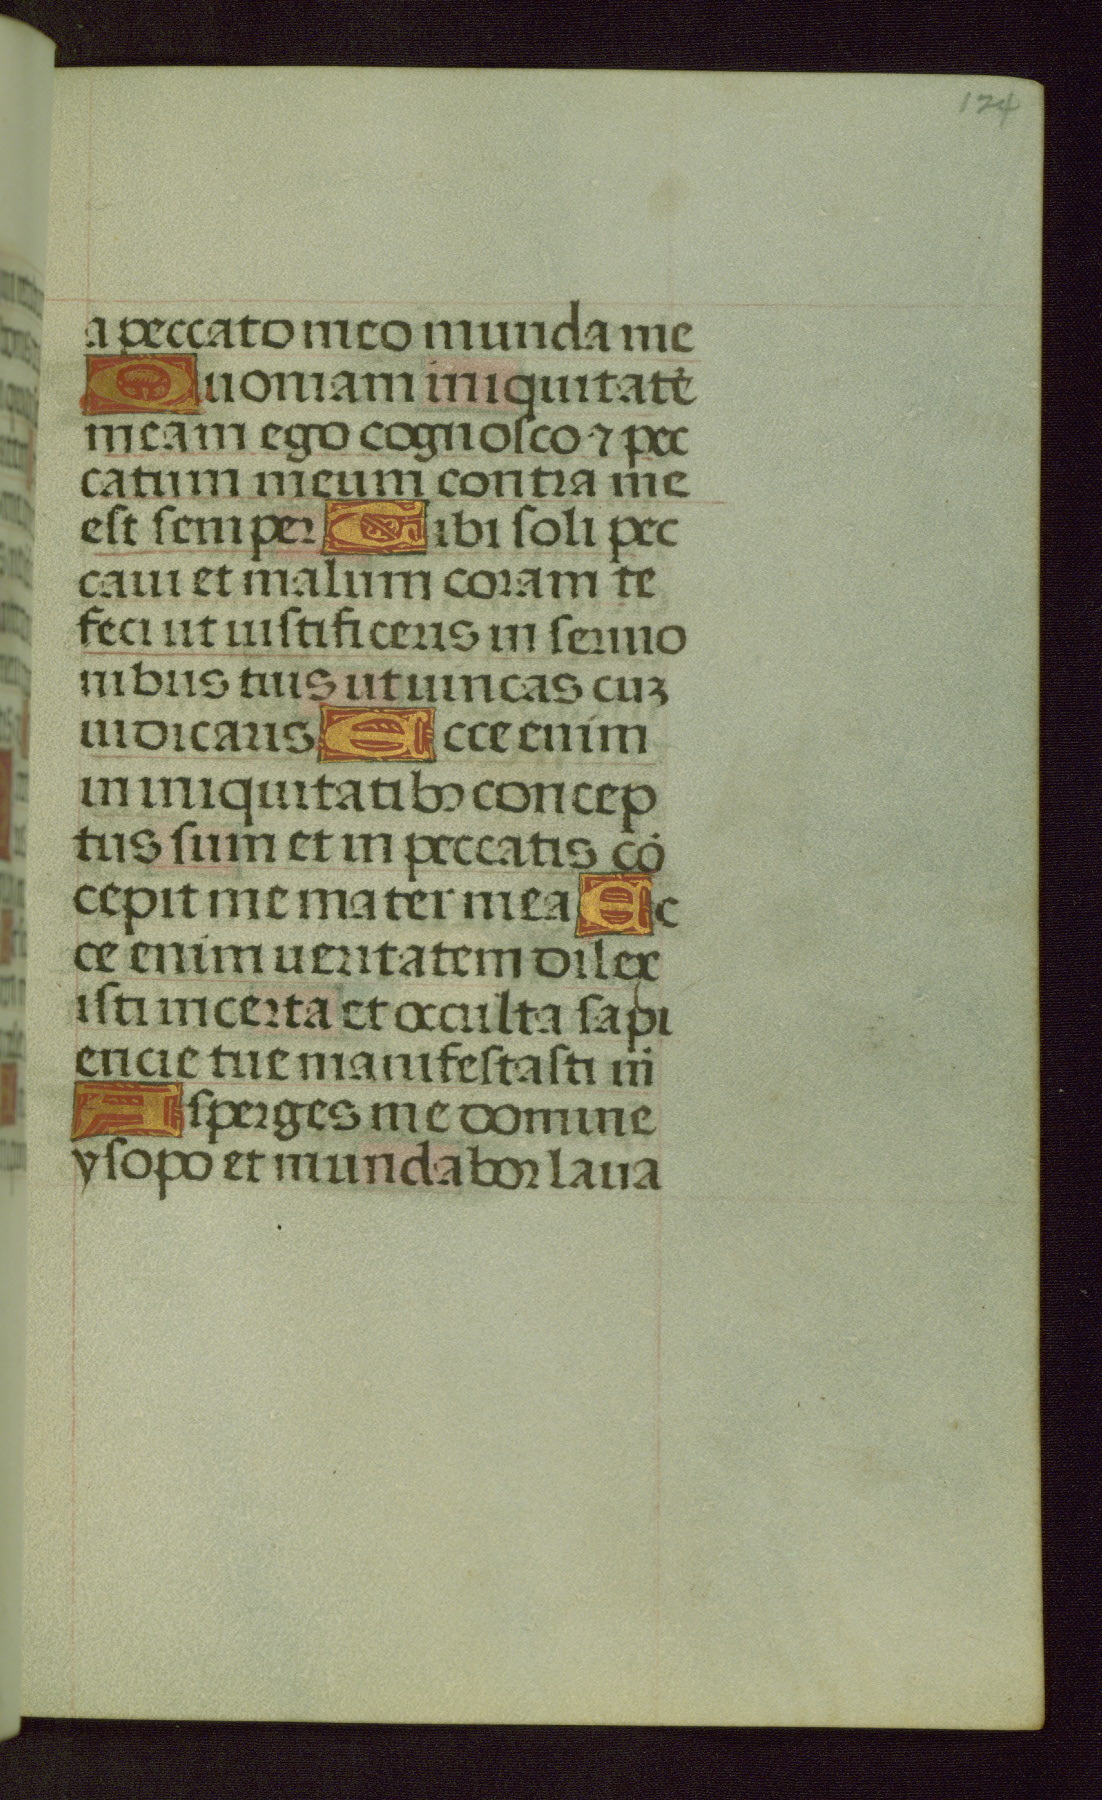 124
a peccato meo munda me
Quoniam iniquitatē
meam ego cognosco ⁊ pec
catum meum contra me
est semper Tibi soli pec
caui et malum coram te
feci ut iustificeris in sermo
nibus tuis ut uincas cuꝫ
iudicaris Ecce enim
in iniquitatibꝰ concep
tus sum et in peccatis cō
cepit me mater mea Ec
ce enim ueritatem dilex
isti incerta et occulta sapi
encie tue manifestasti m̄
Asperges me domine
ysopo et mundabor laua